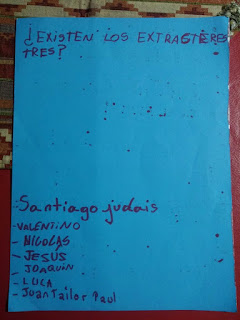 ¿EXISTEN LOS EXTRAGTERES
TRES?
Santiago judais
-VALENTINO
- NICOLAS
- JESÚS
- JOAQUIN
- LUCA
- Juan Tailor Paul